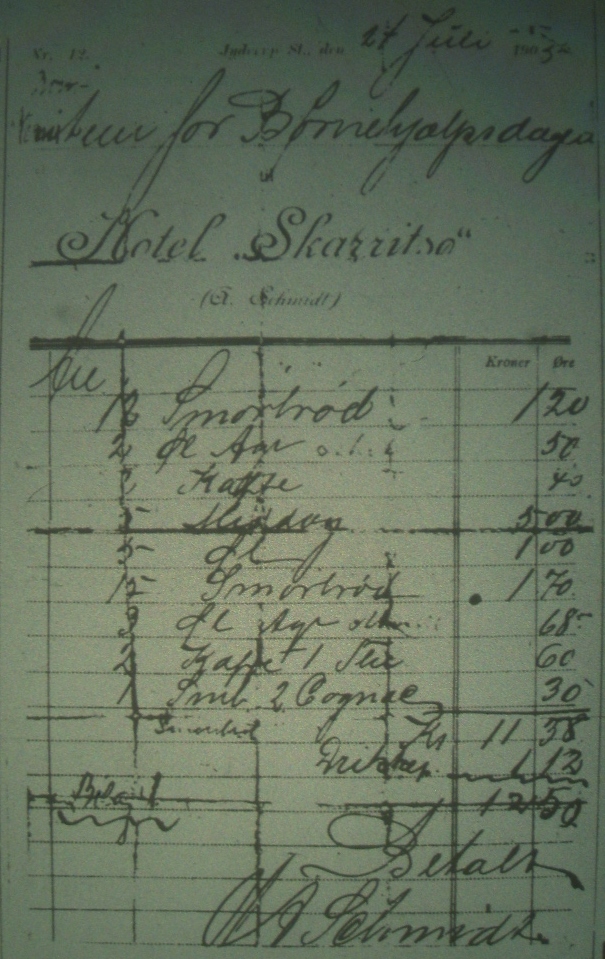 Nr. 12. Jyderup St., den 27 Juli 1905
for Børnehjælpsdagen
til
Hotel „Skarritsø"
(A. Schmidt)
Kroner Øre
12 Smørbrød 1 20
2 Øl Aqv 50
2 Kaffe 40
5 Middag 5 00
5 Øl 1 00
15 Smørbrød 1 70
3 Øl Aqv 68
2 Kaffe 1 The 60
1 Smb 2 Cognac 30
Smørbrød
Kr 11 38
Drikkep. 1 12
12 50
Betalt
A Schmidt